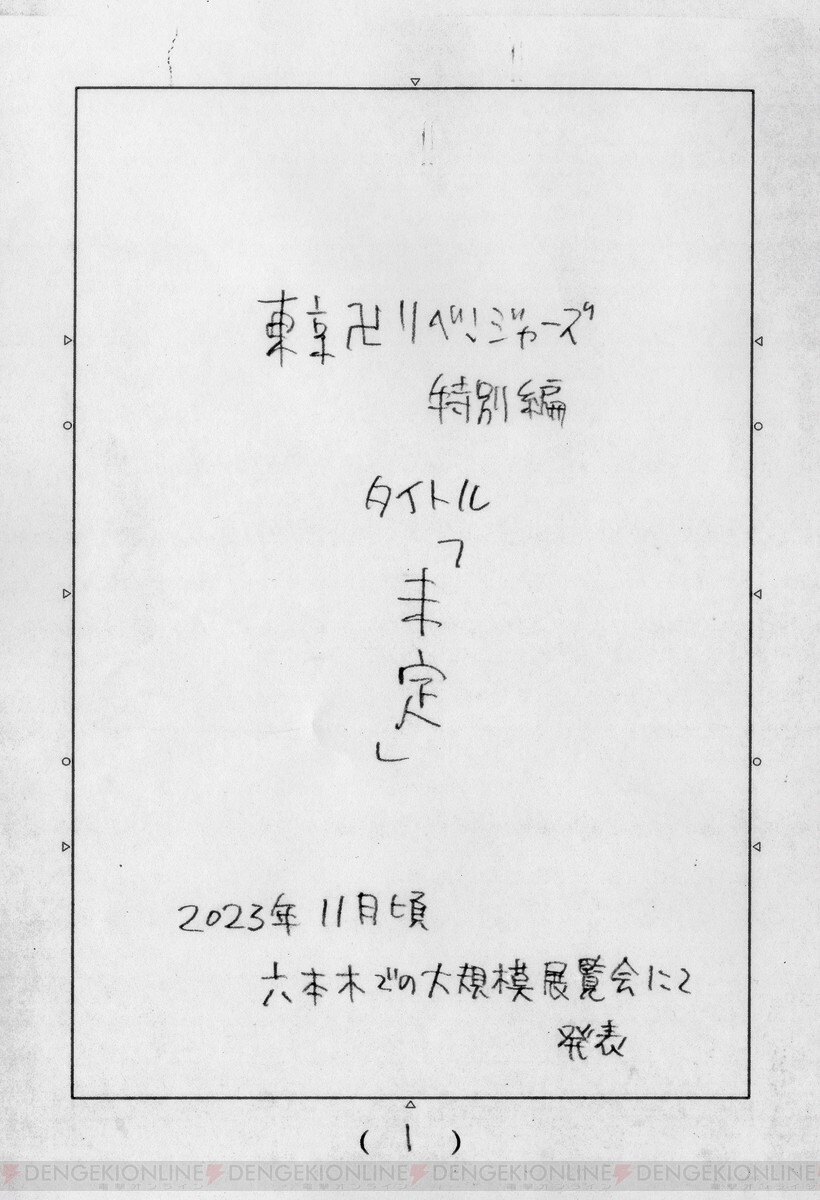 東京卍リベンジャーズ
特別編
タイトル
「未定」
2023年 11月頃
六本木での大規模展覧会にて
発表
( 1 )
DENGEKIONLINE DENGEKIONLINE DENGEKIONLINE DENGEKIONLINE
電撃オンライン